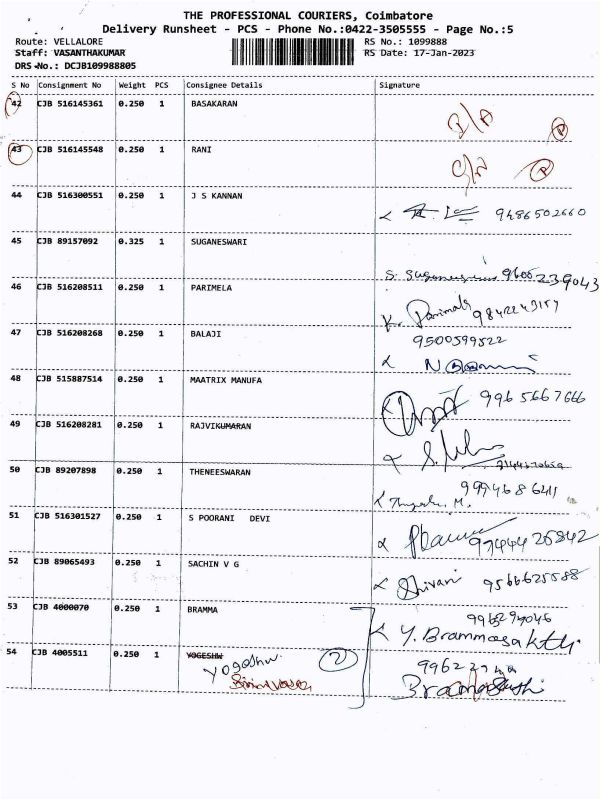 THE PROFESSIONAL COURIERS, Coimbatore
Delivery Runsheet - PCS - Phone No.:0422-3505555 - Page No.:5
Route: VELLALORE RS No.: 1099888
Staff: VASANTHAKUMAR RS Date: 17-Jan-2023
DRS No.: DCJB109988805
S No Consignment No Weight PCS Consignee Details Signature
42 CJB 516145361 0.250 1 BASAKARAN
43 CJB 516145548 0.250 1 RANI
44 CJB 516300551 0.250 1 J S KANNAN
9486502660
45 CJB 89157092 0.325 1 SUGANESWARI
46 CJB 516208511 0.250 1 PARIMELA
47 CJB 516208268 0.250 1 BALAJI
9500599522
48 CJB 515887514 0.250 1 MAATRIX MANUFA
9965667666
49 CJB 516208281 0.250 1 RAJVIKUMARAN
50 CJB 89207898 0.250 1 THENEESWARAN
9994686411
51 CJB 516301527 0.250 1 S POORANI DEVI
52 CJB 89065493 0.250 1 SACHIN V G
Shivani 9566625588
53 CJB 4000070 0.250 1 BRAMMA
Y. Brammasakthi
54 CJB 4005511 0.250 1 YOGESHW
Yogeshw 2